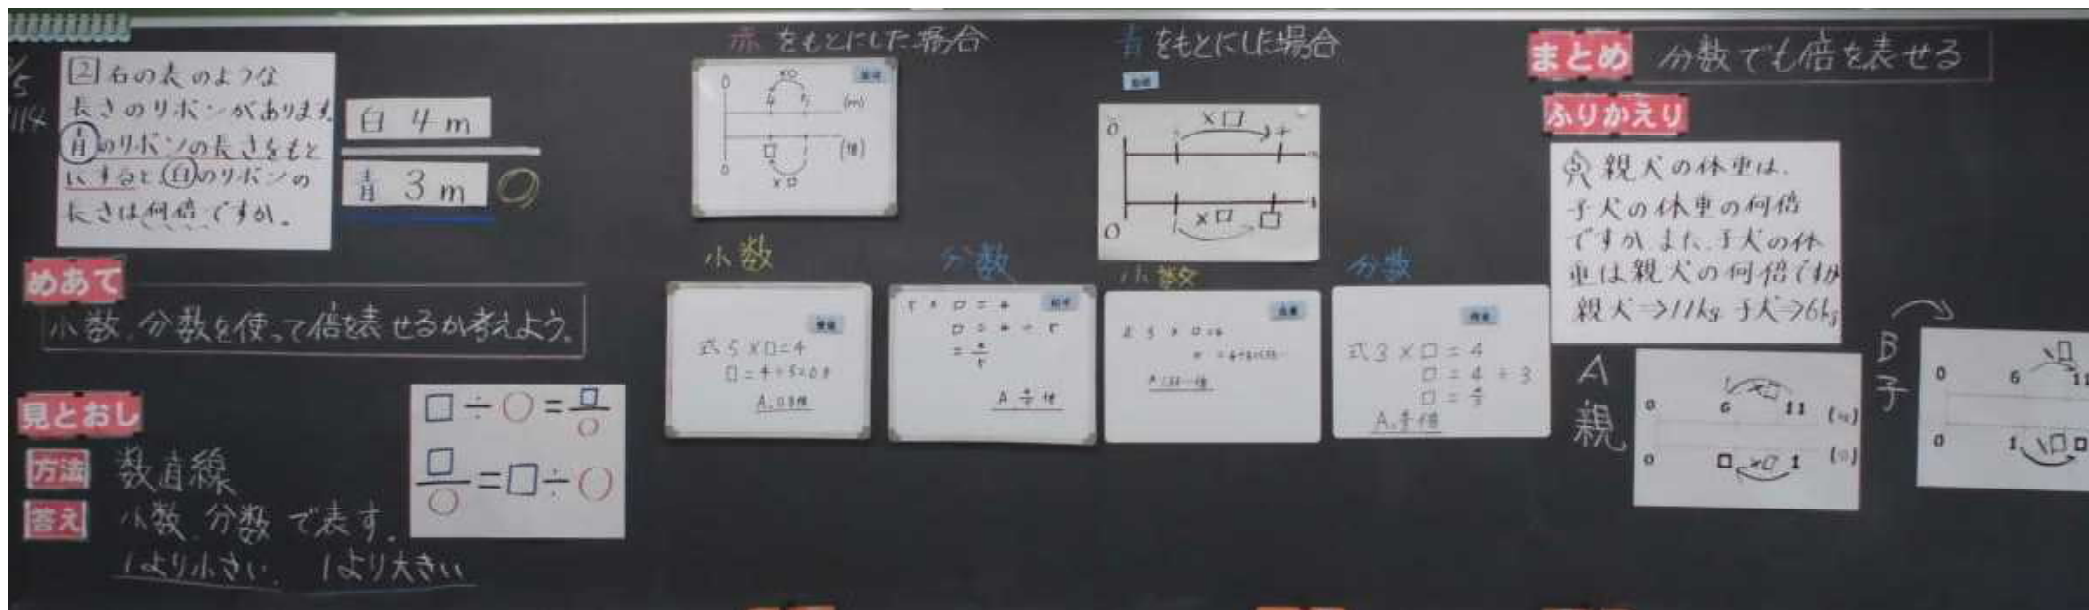 /5
114
2 右の表のような
長さのリボンがあります。
青のリボンの長さをもと
にすると白のリボンの
長さは何倍ですか。
白 4m
青 3m
めあて
小数、分数を使って倍を表せるか考えよう。
見とおし
方法 数直線
答え 小数、分数で表す。
1より小さい、 1より大きい
□÷○=□/○
□/○=□÷○
赤をもとにした場合
0 4 5 (m)
0 □ 1 (倍)
×□
小数
式 5×□=4
□=4÷5=0.8
A. 0.8倍
分数
5×□=4
□=4÷5
=4/5
A. 4/5倍
青をもとにした場合
0
×□
0 1 □
×□
小数
3×□=4
分数
式 3×□=4
□=4÷3
□=4/3
A. 4/3倍
まとめ 分数でも倍を表せる
ふりかえり
親犬の体重は、
子犬の体重の何倍
ですか。また、子犬の体
重は親犬の何倍ですか
親犬⇒11kg 子犬⇒6kg
A
親
×□
0 6 11 (kg)
0 □ 1
×□
B
子
0 6 11
0 1 □